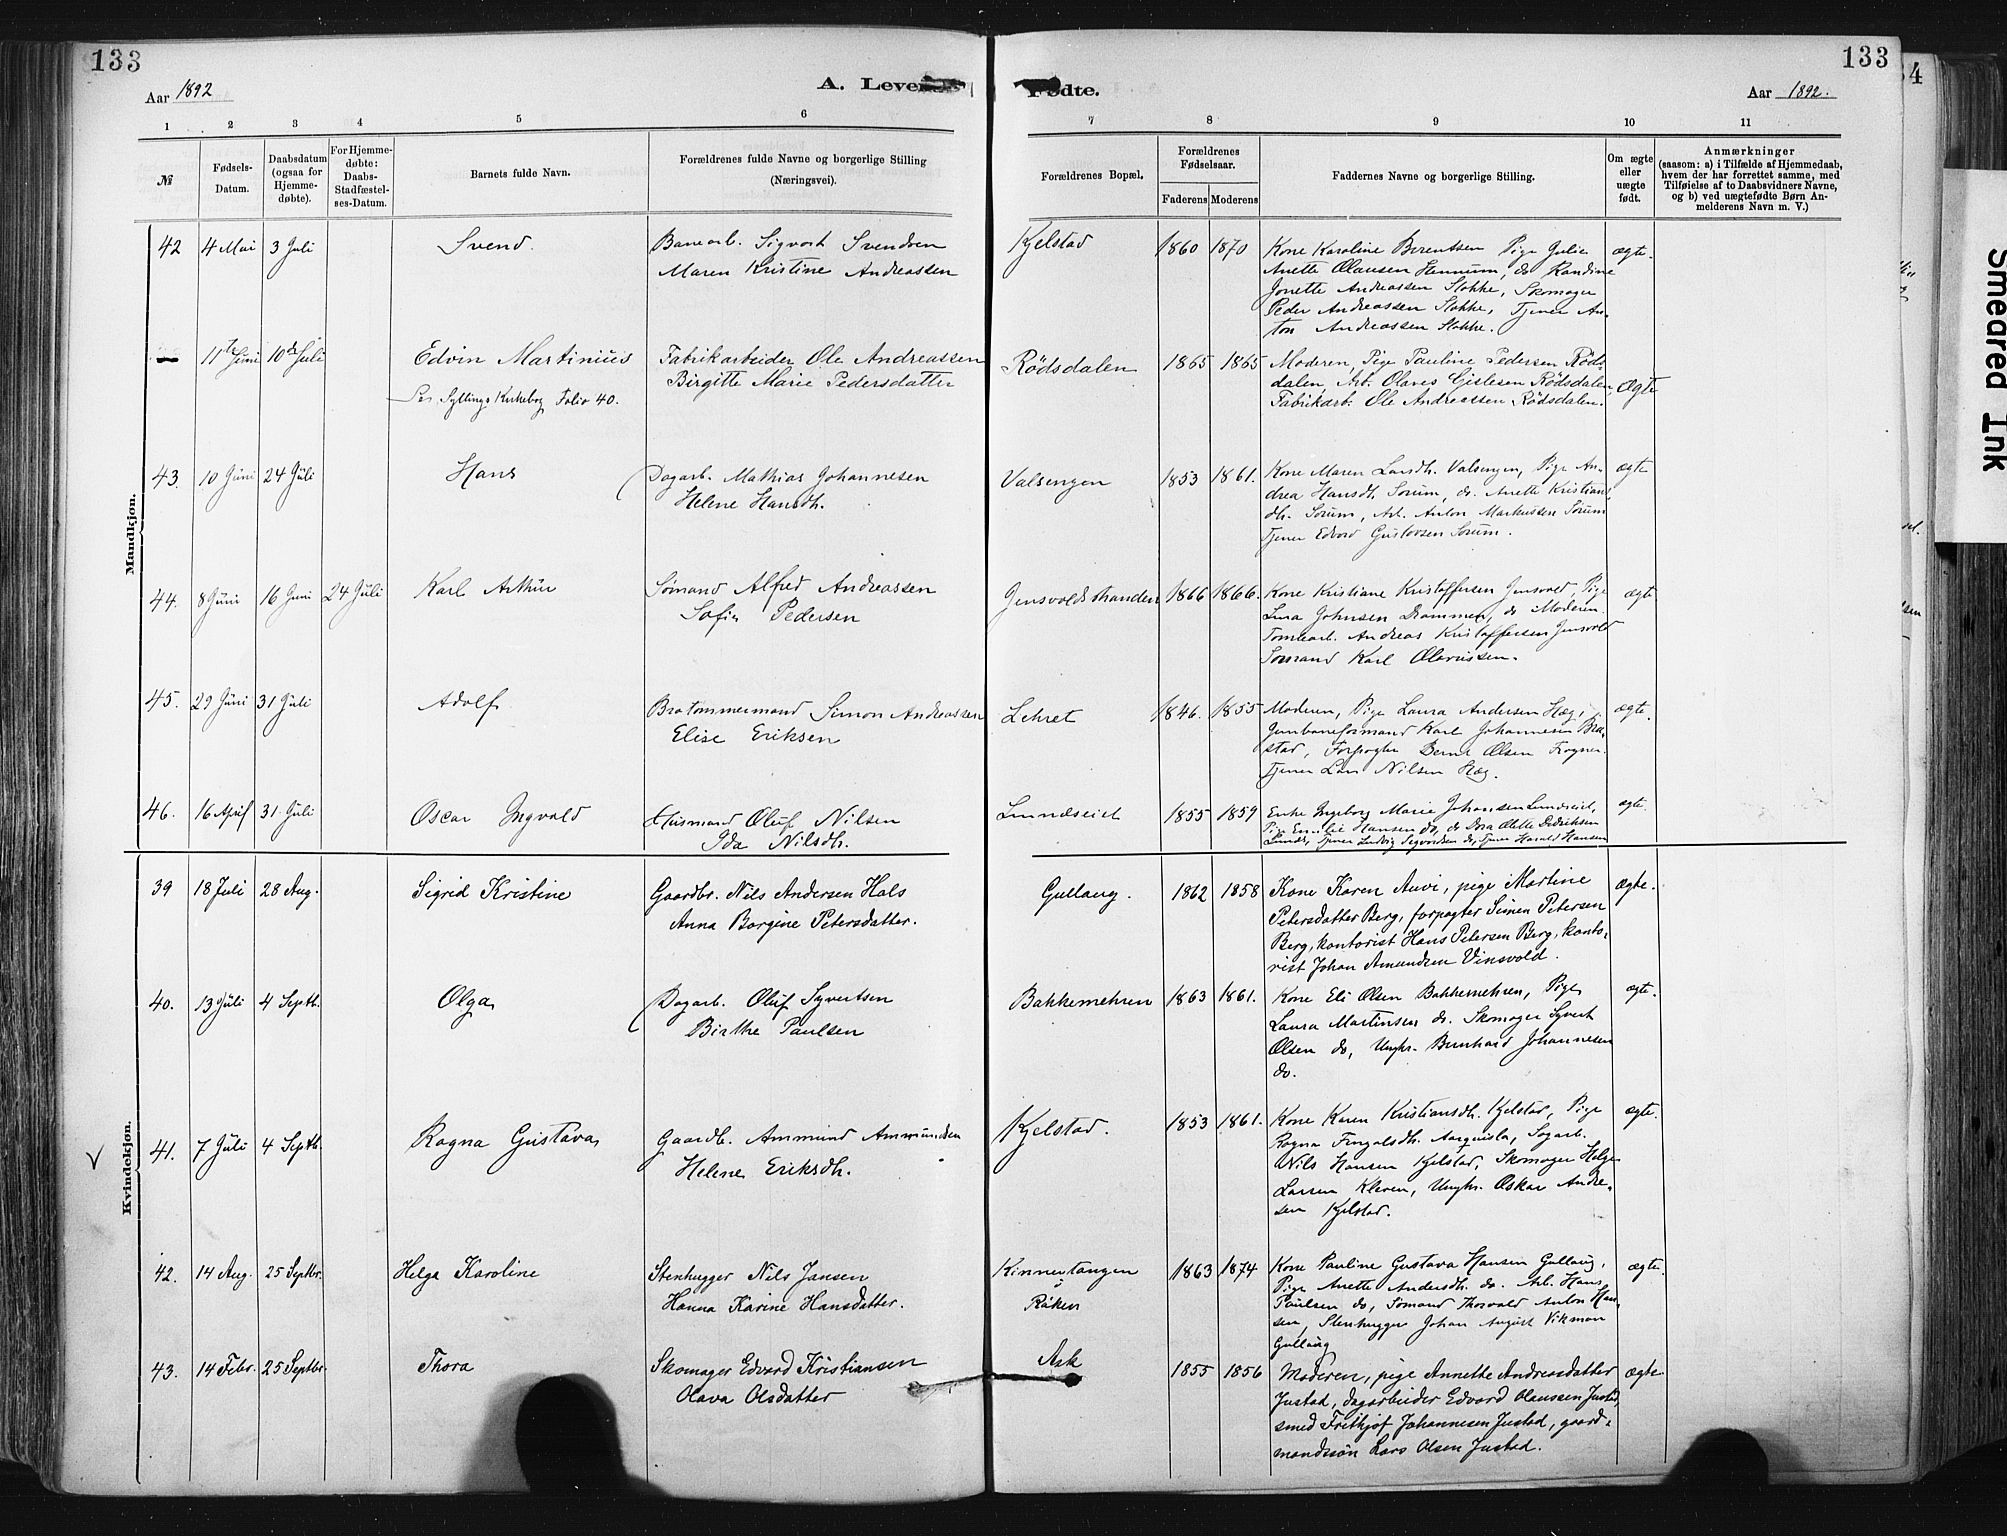 133
133
34
Aar 1892
A. Leve
Fødte.
Aar 1892.
1 2 3 4 5 6 7 8 9 10 11
№
Fødsels-
Datum.
Daabsdatum
(ogsaa for
Hjemme-
døbte).
For Hjemme-
døbte:
Daabs-
Stadfæstel-
ses-Datum.
Barnets fulde Navn.
Forældrenes fulde Navne og borgerlige Stilling
(Næringsvei).
Forældrenes Bopæl.
Forældrenes
Fødselsaar.
Faderens
Moderens
Faddernes Navne og borgerlige Stilling.
Om ægte
eller
uægte
født.
Anmærkninger
(saasom: a) i Tilfælde af Hjemmedaab,
hvem der har forrettet samme, med
Tilføielse af to Daabsvidners Navne,
og b) ved uægtefødte Børn An-
melderens Navn m. V.)
Mandkjøn.
42 4 Mai 3 Juli Svend.
Banearb. Sigvart Svendsen
Maren Kristine Andreassen
Kjelstad 1860 1870
Kone Karoline Berentsen Pige Julie
Anette Olausen Hennum, do Randine
Jonette Andreassen Stokke, Skomager
Peder Andreassen Stokke, Tjener An-
ton Andreassen Stokke.
ægte.
— 11te Juni 10de Juli Edvin Martinius
Se Syllings Kirkebog Folio 40.
Fabrikarbeider Ole Andreassen
Birgitte Marie Pedersdatter
Rödsdalen 1865 1865
Moderen, Pige Pauline Pedersen Röds-
dalen, Arb. Olaves Gislesen Rödsdalen,
Fabrikarb. Ole Andreassen Rödsdalen.
Ægte
43. 10 Juni 24 Juli Hans
Dagarb. Mathias Johannesen
Helene Hansdh.
Valsengen 1853 1861.
Kone Maren Larsdh. Valsengen, Pige An-
drea Hansdh. Sørum, do. Anette Kristian-
dh. Sørum, Arb. Anton Markussen Sørum
Tjener Edvard Gustavsen Sørum.
ægte
44. 8 Juni 16 Juni 24 Juli Karl Arthur
Sømand Alfred Andreassen
Sofie Pedersen
Gjensvoldstranden 1866 1866.
Kone Kristiane Kristoffersen Gjensvold, Pige
Lina Johnsen Drammen, do Moderen.
Tomtearb. Andreas Kristoffersen Gjensvold
Sømand Karl Olavussen.
ægte
45. 29 Juni 31 Juli Adolf
Brotømmermand Simon Andreassen
Elise Eriksen
Lehret 1846. 1855
Moderen, Pige Laura Andersen Hæg,
Jernbaneformand Karl Johannesen Bra-
stad, Forpagter Bernt Olsen Frogner.
Tjener Lars Nilsen Hæg.
ægte.
46. 16 April 31 Juli Oscar Ingvald
Husmand Oluf Nilsen
Ida Nilsdh.
Lundseiet 1855 1859
Enke Ingeborg Marie Johansen Lundseiet,
Pige Emilie Hansen do, do Dora Olette Didriksen
Lunde, Tjener Ludvig Sigvardsen do, Tjener Harald Hansen
ægte
Kvindekjøn.
39 18 Juli 28 Aug. Sigrid Kristine
Gaardbr. Nils Andersen Hals
Anna Borgine Petersdatter.
Gullaug. 1862 1858
Kone Karen Auvi, pige Martine
Petersdatter Berg, forpagter Simen Petersen
Berg, kontorist Hans Petersen Berg, konto-
rist Johan Amundsen Vinsvold.
ægte.
40. 13 Juli 4 Septb. Olga
Dagarb. Oluf Syvertsen
Birthe Paulsen
Bakkemehren 1863 1861.
Kone Eli Olsen Bakkemehren, Pige
Laura Martinsen do. Skomager Syvert
Olsen do, Ungkr. Bernhard Johannesen
do.
ægte.
41. 7 Juli 4 Septb. Ragna Gustava
Gaardb. Ammund Ammundsen
Helene Eriksdh.
Kjelstad. 1853 1861.
Kone Karen Kristiansdh. Kjelstad, Pige
Ragna Fingalsdh. Aarquisla, Sagarb.
Nils Hansen Kjelstad, Skomager Helge
Larsen Kleven, Ungkr. Oskar Andre-
sen Kjelstad.
ægte.
42. 14 Aug. 25 Septbr. Helga Karoline
Stenhugger Nils Jansen
Hanna Karine Hansdatter.
Kinnertangen
Røken
1863 1874
Kone Pauline Gustava Hansen Gullaug,
Pige Anette Andersdh. do. Arb. Hans
Paulsen do, Sømand Thorvald Anton Han-
sen, Stenhugger Johan August Vikman
Gullaug
ægte.
43. 14 Febr. 25 Septbr. Thora
Skomager Edvard Kristiansen
Olava Olsdatter
Ask
1855 1856
Moderen, pige Annette Andreasdatter
Justad, dagarbeider Edvard Olaussen Justad,
smed Frithjof Johannesen Justad, gaard-
mandssøn Lars Olsen Justad.
ægte
Smeared Ink